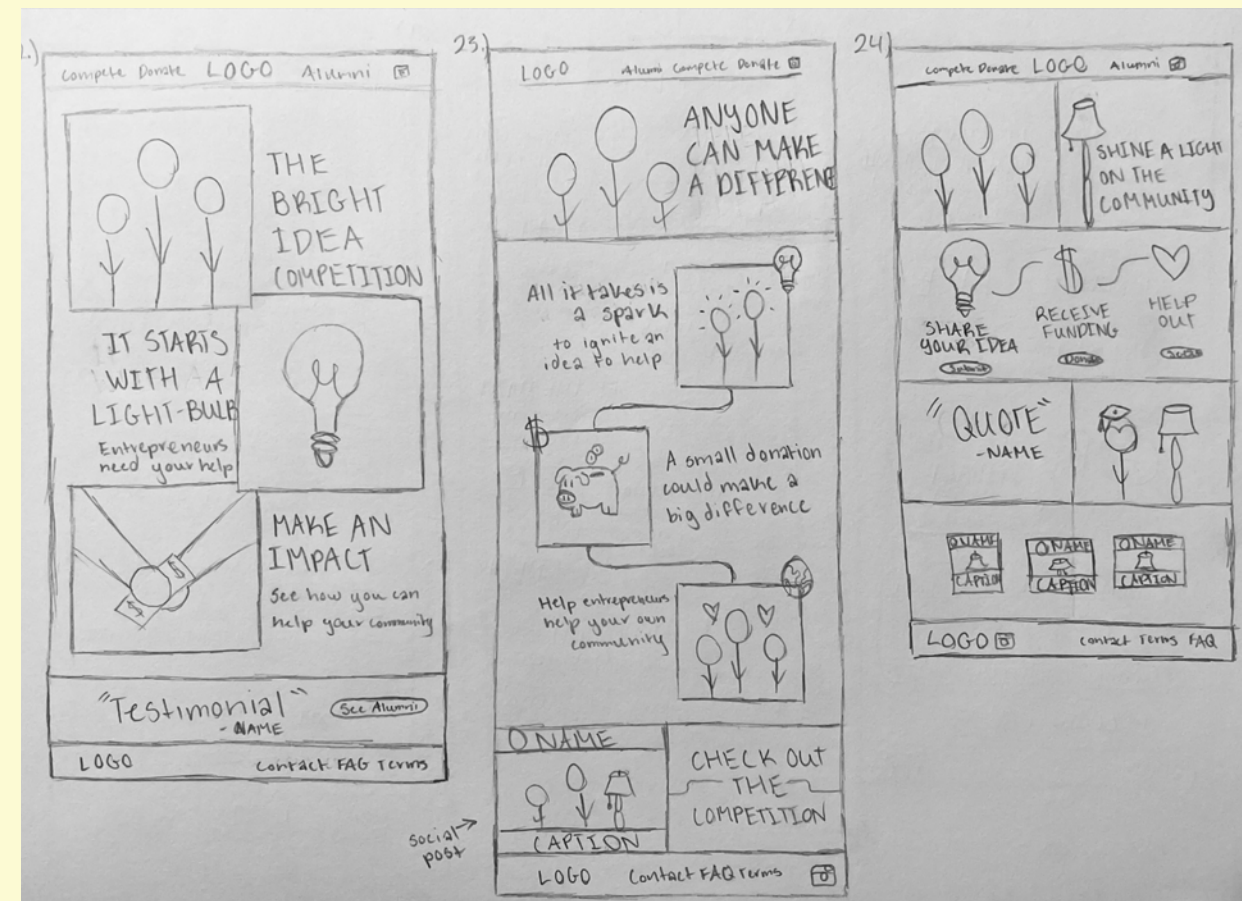 .)
Compete Donate LOGO Alumni
THE
BRIGHT
IDEA
COMPETITION
IT STARTS
WITH A
LIGHT-BULB
Entrepreneurs
need your help
$
$
MAKE AN
IMPACT
See how you can
help your community
"Testimonial"
- NAME
See Alumni
LOGO
Contact FAQ Terms
23.)
LOGO
Alumni Compete Donate
ANYONE
CAN MAKE
A DIFFERENE
All it takes is
a spark
to ignite an
idea to help
$
A small donation
could make a
big difference
Help entrepreneurs
help your own
community
O NAME
CAPTION
social
post
CHECK OUT
THE
COMPETITION
LOGO Contact FAQ Terms
24)
Compete Donate LOGO Alumni
SHINE A LIGHT
ON THE
COMMUNITY
$
SHARE
YOUR IDEA
Submit
RECEIVE
FUNDING
Donate
HELP
OUT
"QUOTE"
-NAME
O NAME
CAPTION
O NAME
CAPTION
O NAME
CAPTION
LOGO
Contact Terms FAQ